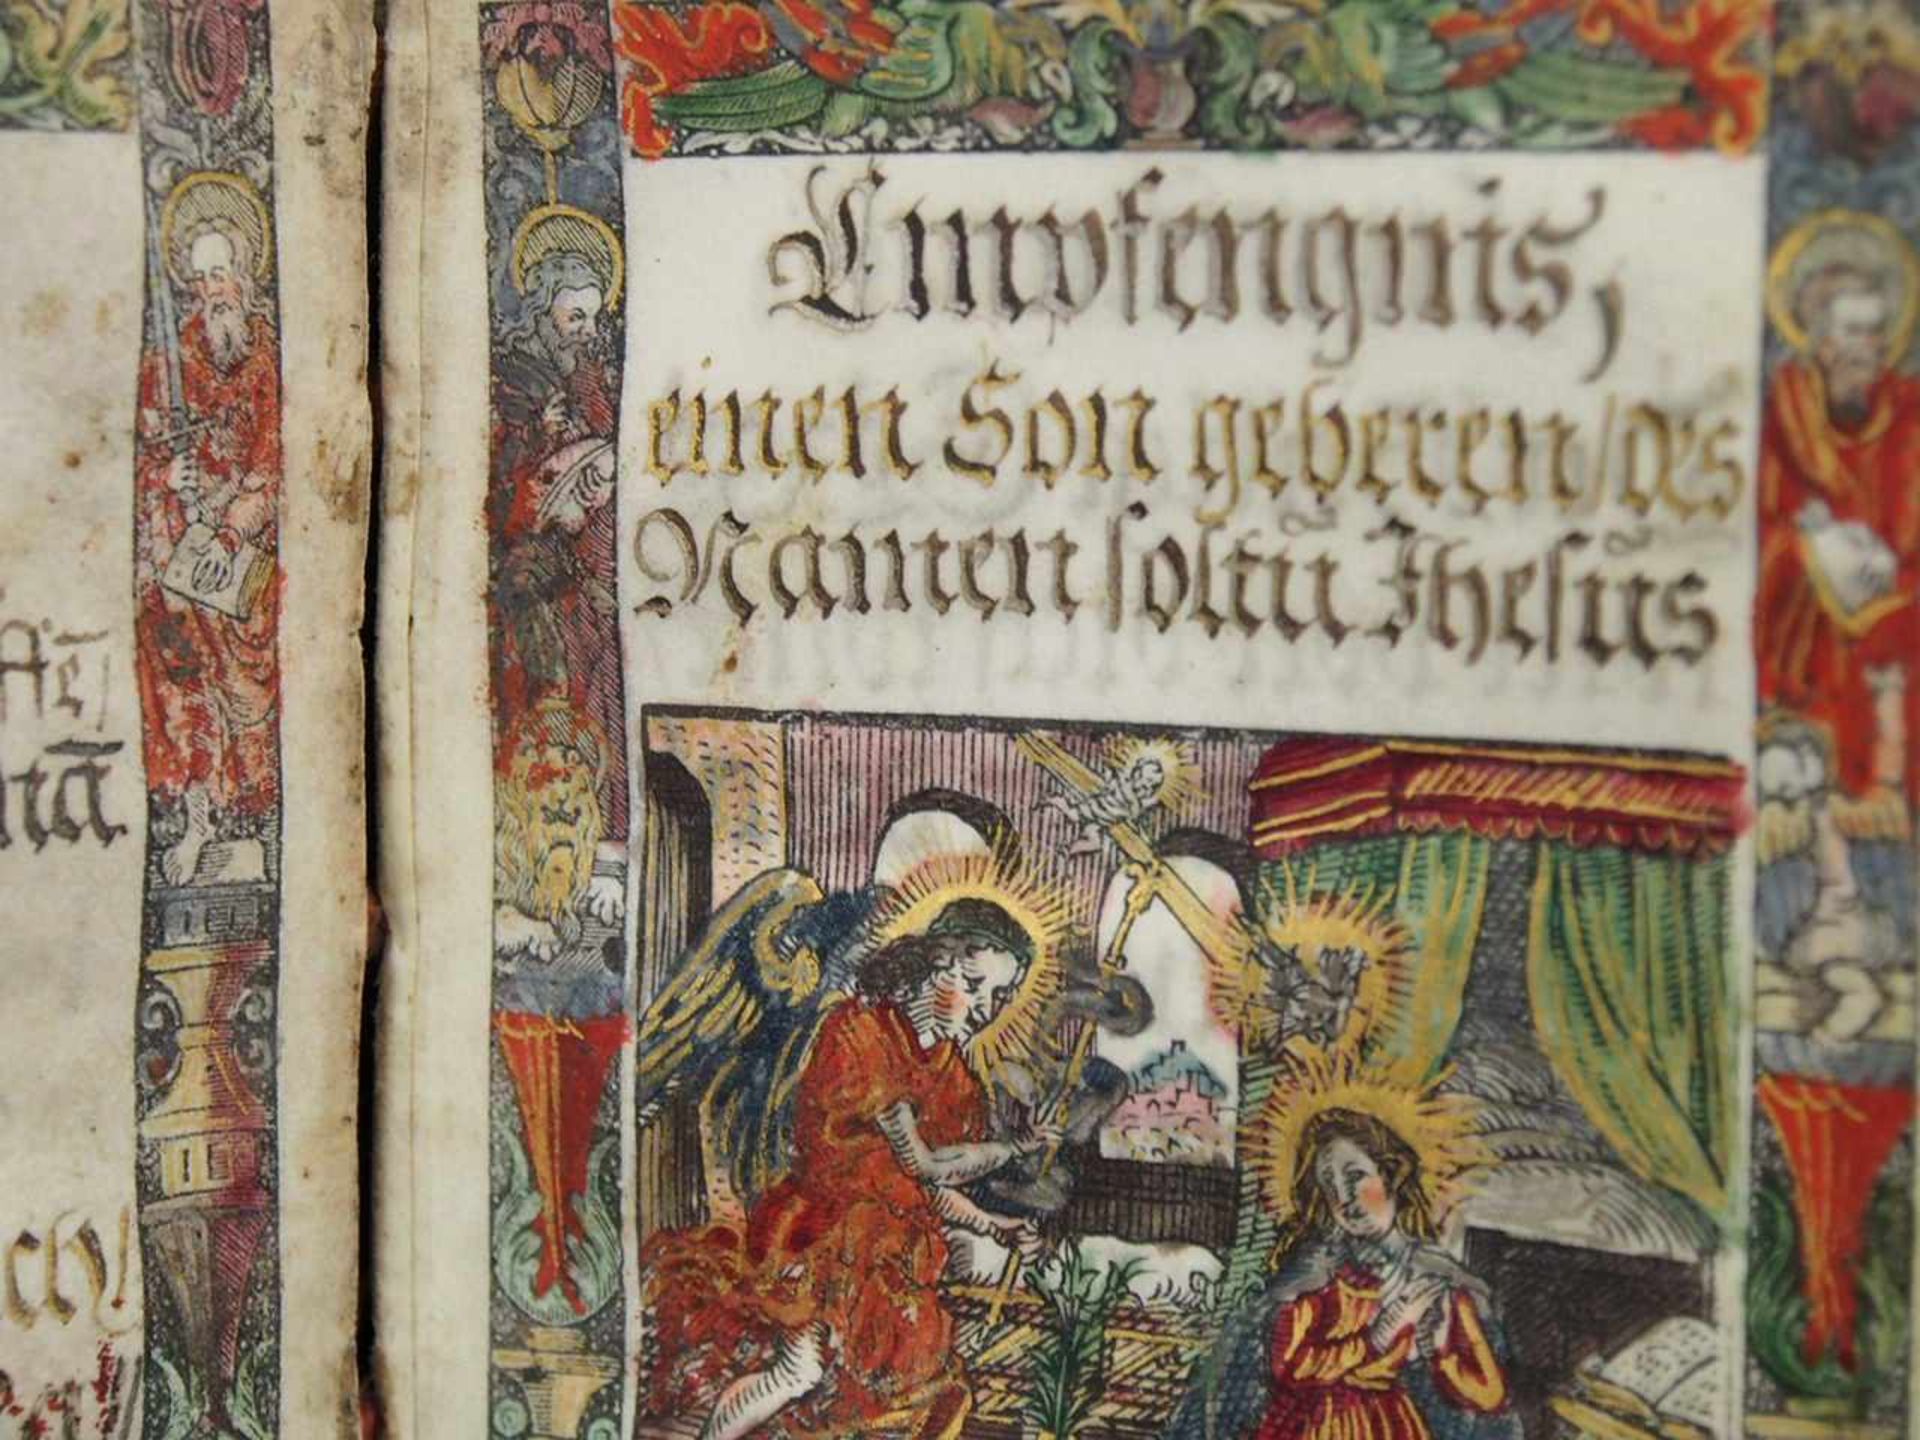 Empfengnis,
einen Son geberen/des
Namen soltu Jhesus